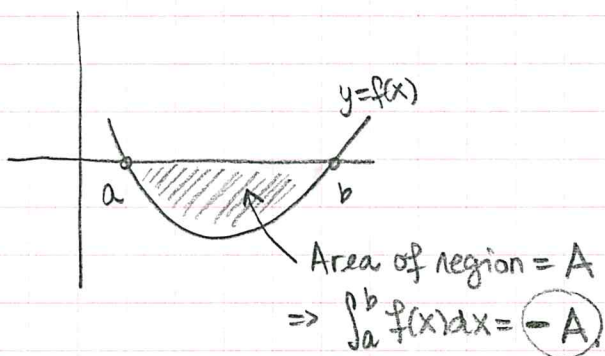 y=f(x)
a
b
Area of region = A
=> ∫_a^b f(x)dx = -A.